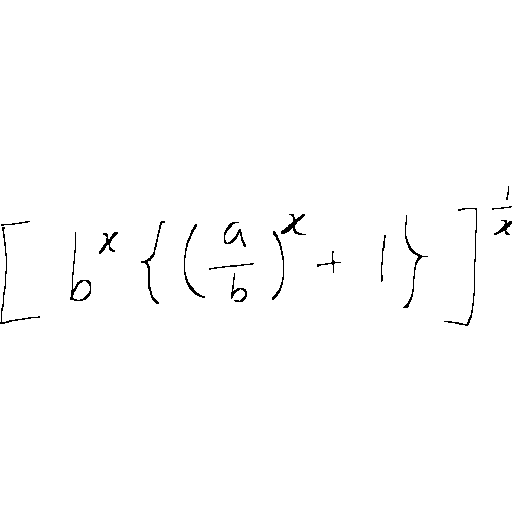 \left[ b^{x} \left\{ \left( \frac{a}{b} \right)^{x} + 1 \right\} \right]^{\frac{1}{x}}